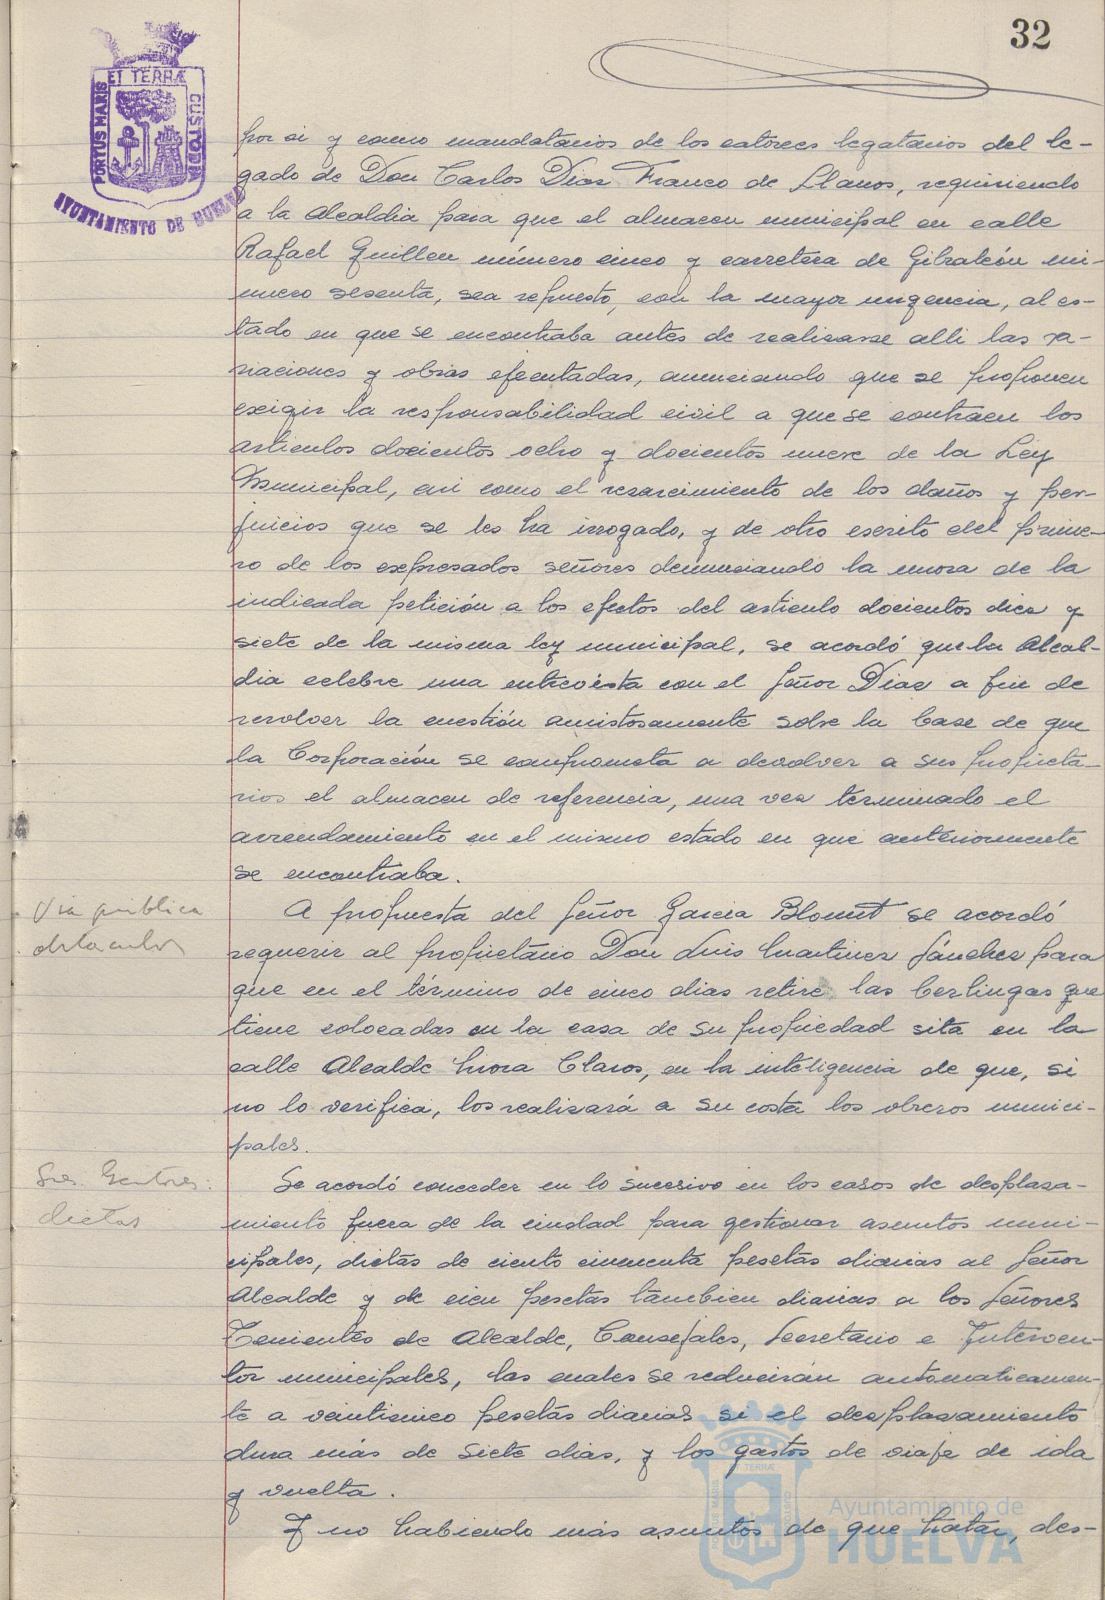 32
ET TERRÆ
PORTUS MARIS
CUSTODIA
AYUNTAMIENTO DE HUELVA
por si y como mandatarios de los catorce legatarios del le-
gado de Don Carlos Diaz Franco de Llanos, requiriendo
a la Alcaldia para que el almacen municipal en calle
Rafael Guillen número cinco y carretera de Gibraleón nú-
mero sesenta, sea repuesto, con la mayor urgencia, al es-
tado en que se encontraba antes de realizarse alli las va-
riaciones y obras efectuadas, anunciando que se proponen
exigir la responsabilidad civil a que se contraen los
articulos docientos ocho y docientos nueve de la Ley
Municipal, asi como el resarcimiento de los daños y per-
juicios que se les ha irrogado, y de otro escrito del prime-
ro de los expresados señores denunciando la mora de la
indicada petición a los efectos del articulo docientos diez y
siete de la misma ley municipal, se acordó que la Alcal-
dia celebre una entrevista con el Señor Diaz a fin de
resolver la cuestión amistosamente sobre la base de que
la Corporación se comprometa a devolver a sus propieta-
rios el almacen de referencia, una vez terminado el
arrendamiento en el mismo estado en que anteriormente
se encontraba.
Via pública
obstaculos
A propuesta del Señor Garcia Blount se acordó
requerir al propietario Don Luis Martinez Sánchez para
que en el término de cinco dias retire las berlingas que
tiene colocadas en la casa de su propiedad sita en la
calle Alcalde Mora Claros, en la inteligencia de que, si
no lo verifica, los realizará a su costa los obreros munici-
pales.
Sres. Gestores:
dietas
Se acordó conceder en lo sucesivo en los casos de desplaza-
miento fuera de la ciudad para gestionar asuntos muni-
cipales, dietas de ciento cincuenta pesetas diarias al Señor
Alcalde y de cien pesetas tambien diarias a los Señores
Tenientes de Alcalde, Consejales, Secretario e Interven-
tor municipales, las cuales se reducirán automaticamen-
te a veinticinco pesetas diarias si el desplazamiento
dura más de siete dias, y los gastos de viaje de ida
y vuelta.
Y no habiendo más asuntos de que tratar, des-
Ayuntamiento de
HUELVA